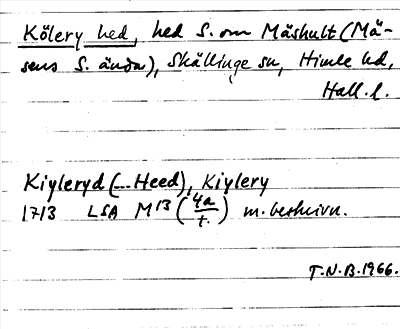 Kölery hed, hed S. om Mäshult (Mä-
sens S. ända), Skällinge sn, Himle hd,
Hall. l.
Kiyleryd (... Heed), Kiylery
1713 LSA M13 (4a/t.) m. beskrivn.
T.N.B. 1966.